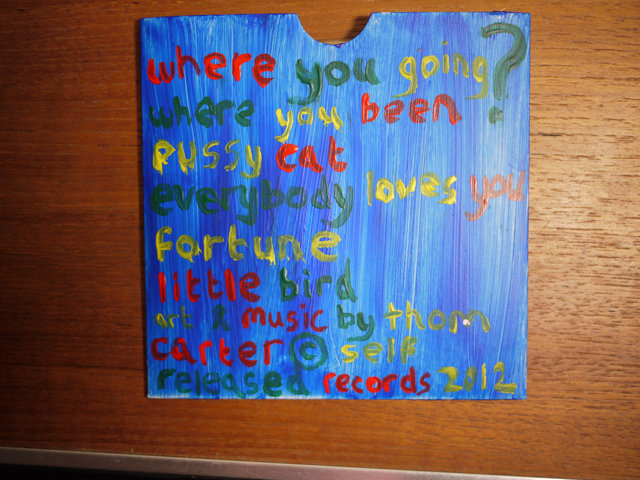 where you going?
where you been
pussy cat
everybody loves you
fortune
little bird
art & music by thom
carter © self
released records 2012